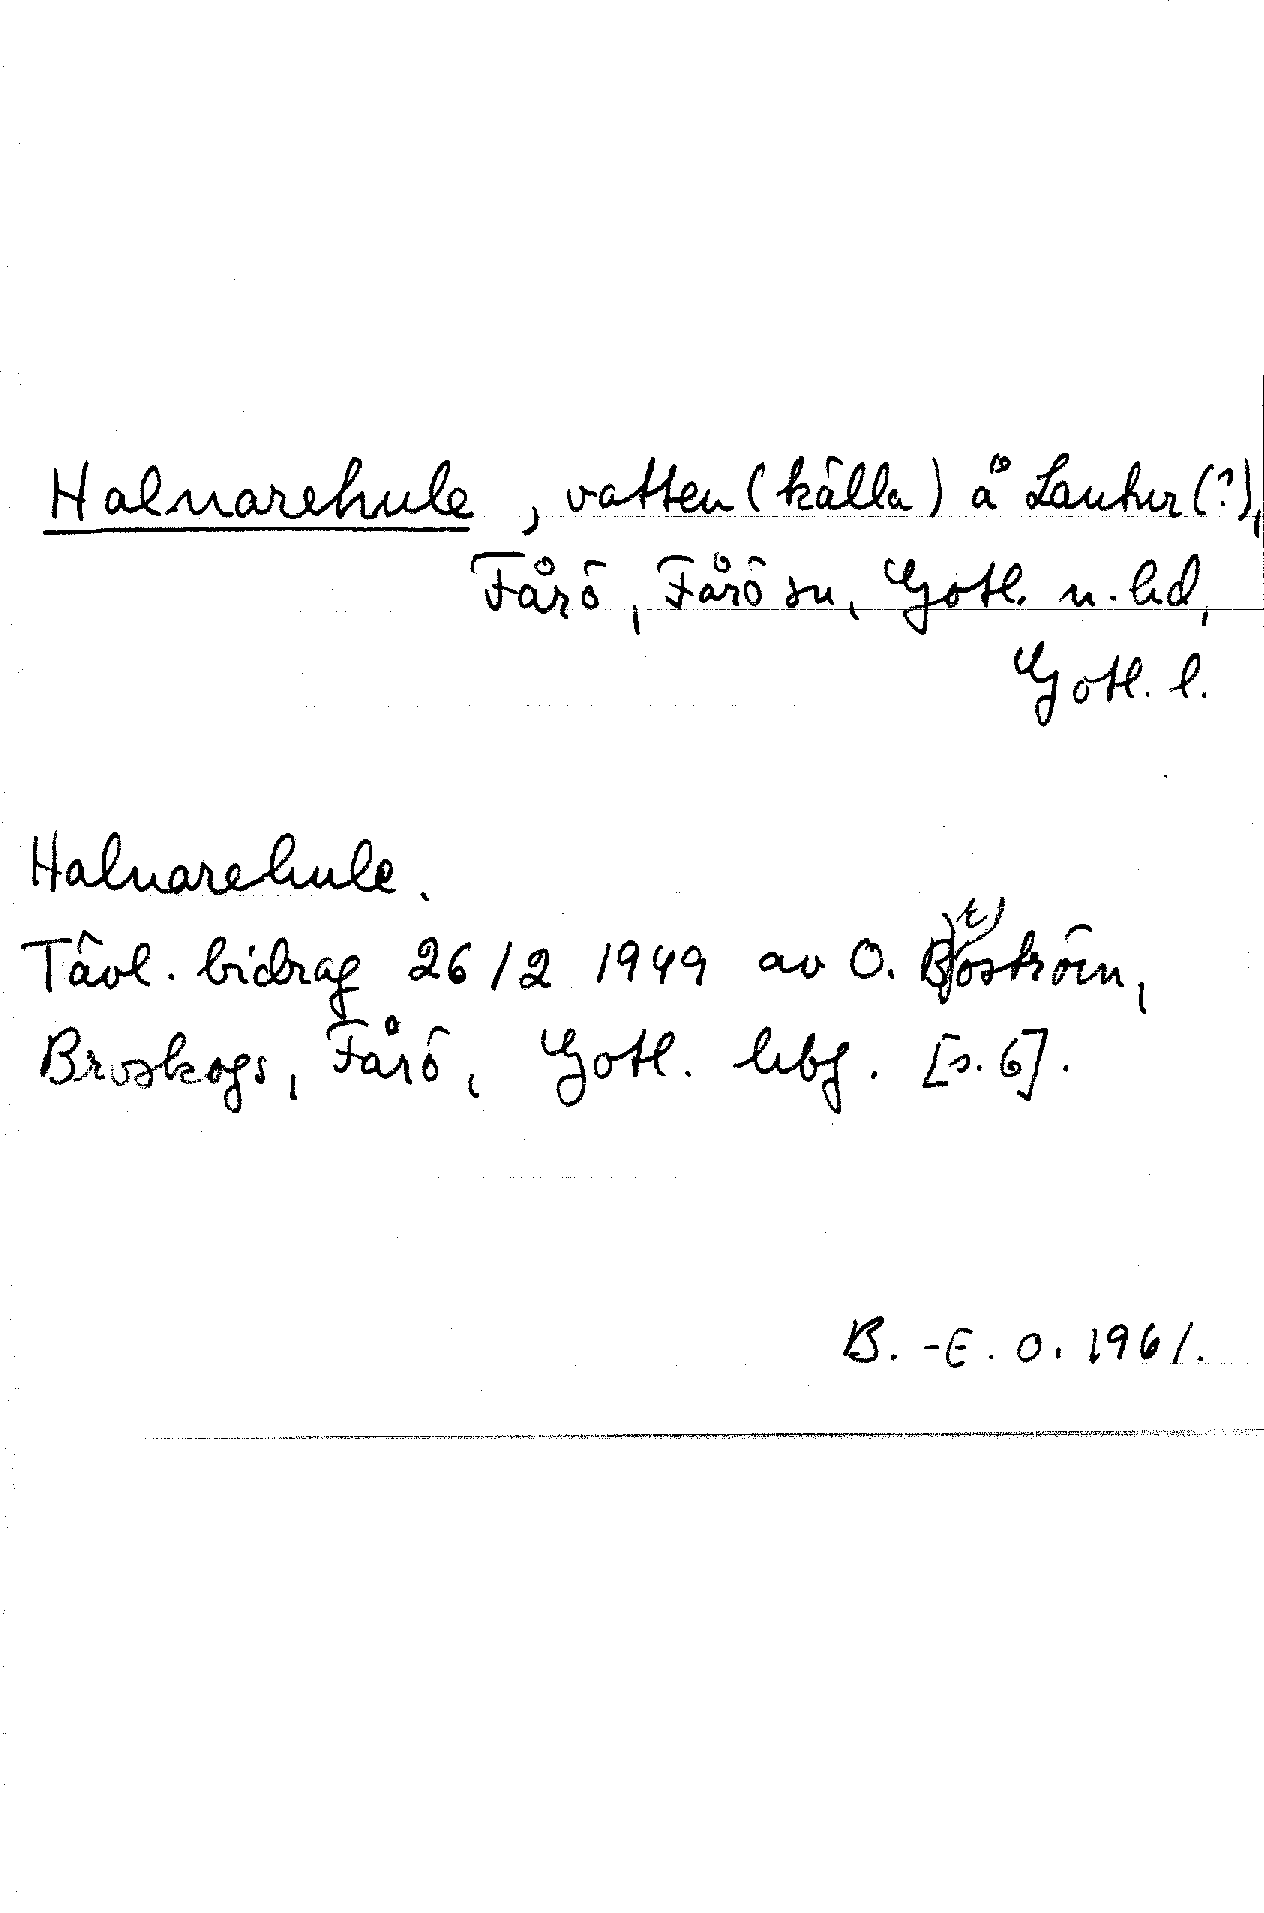 Halnarehule, vatten (källa) å Lauter (?),
Fårö, Fårö sn, Gotl. n. hd,
Gotl. l.
Halnarehule.
Tävl. bidrag 26/2 1949 av O. Boström,
Broskogs, Fårö, Gotl. hbg. [s. 6].
B.-E. O. 1961.